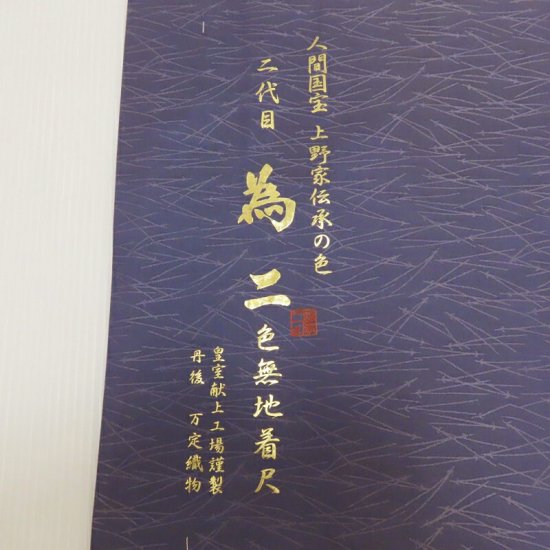 人間国宝 上野家伝承の色
二代目 為二 色無地着尺
皇室献上工場謹製
丹後 万定織物